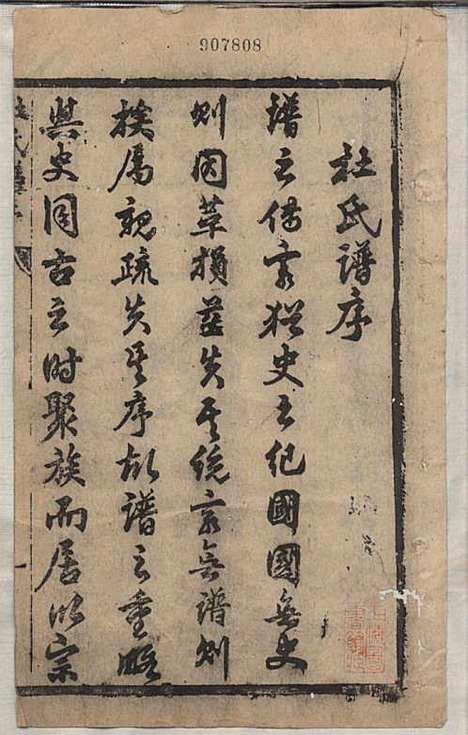 907808
杜氏譜序
譜之傳家猶史之紀國國無史
則因革損益失其統家無譜則
族屬親疏失其序故譜之重略
與史同古之時聚族而居以宗